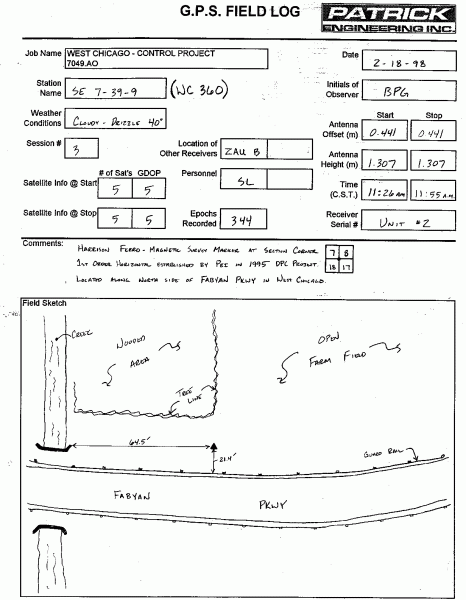 G.P.S. FIELD LOG
PATRICK
ENGINEERING INC.
Job Name WEST CHICAGO - CONTROL PROJECT
7049.AO
Date 2-18-98
Station Name SE 7-39-9 (WC 360)
Initials of Observer BPG
Weather Conditions CLOUDY - DRIZZLE 40°
Start Stop
Antenna Offset (m) 0.441 0.441
Session # 3
Location of Other Receivers ZAU B
Antenna Height (m) 1.307 1.307
# of Sat's GDOP
Personnel SL
Satellite Info @ Start 5 5
Time (C.S.T.) 11:26 AM 11:55 AM
Satellite Info @ Stop 5 5
Epochs Recorded 344
Receiver Serial # UNIT #2
Comments: HARRISON FERRO-MAGNETIC SURVEY MARKER AT SECTION CORNER 7 8
1ST ORDER HORIZONTAL ESTABLISHED BY PEI IN 1995 DPC PROJECT. 18 17
LOCATED ALONG NORTH SIDE OF FABYAN PKWY IN WEST CHICAGO.
Field Sketch
CREEK
WOODED AREA
OPEN FARM FIELD
TREE LINE
64.5'
22.4'
GUARD RAIL
FABYAN PKWY